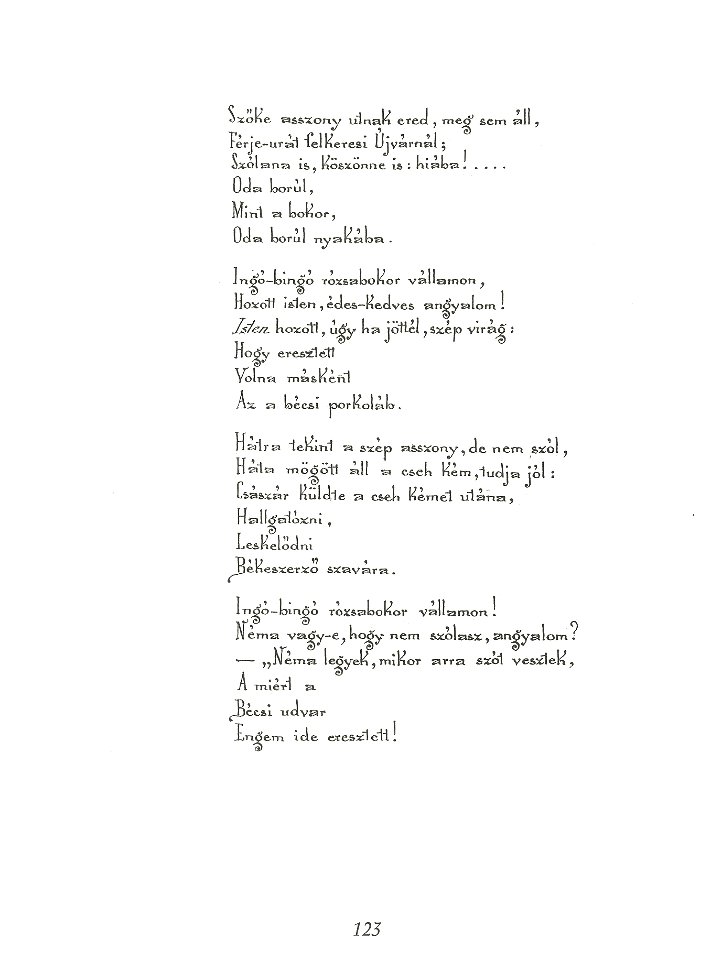 Szőke asszony utnak ered, meg sem áll,
Férje-urát felkeresi Újvárnál;
Szólana is, köszönne is: hiába!....
Oda borúl,
Mint a bokor,
Oda borúl nyakába.
Ingó-bingó rózsabokor vállamon,
Hozott isten, édes-kedves angyalom!
Isten hozott, úgy ha jöttél, szép virág:
Hogy eresztett
Volna másként
Az a bécsi porkoláb.
Hátra tekint a szép asszony, de nem szól,
Háta mögött áll a cseh kém, tudja jól:
Császár küldte a cseh kémet utána,
Hallgatózni,
Leskelődni
Békeszerző szavára.
Ingó-bingó rózsabokor vállamon!
Néma vagy-e, hogy nem szólasz, angyalom?
— „Néma legyek, mikor arra szót vesztek,
A miért a
Bécsi udvar
Engem ide eresztett!
123